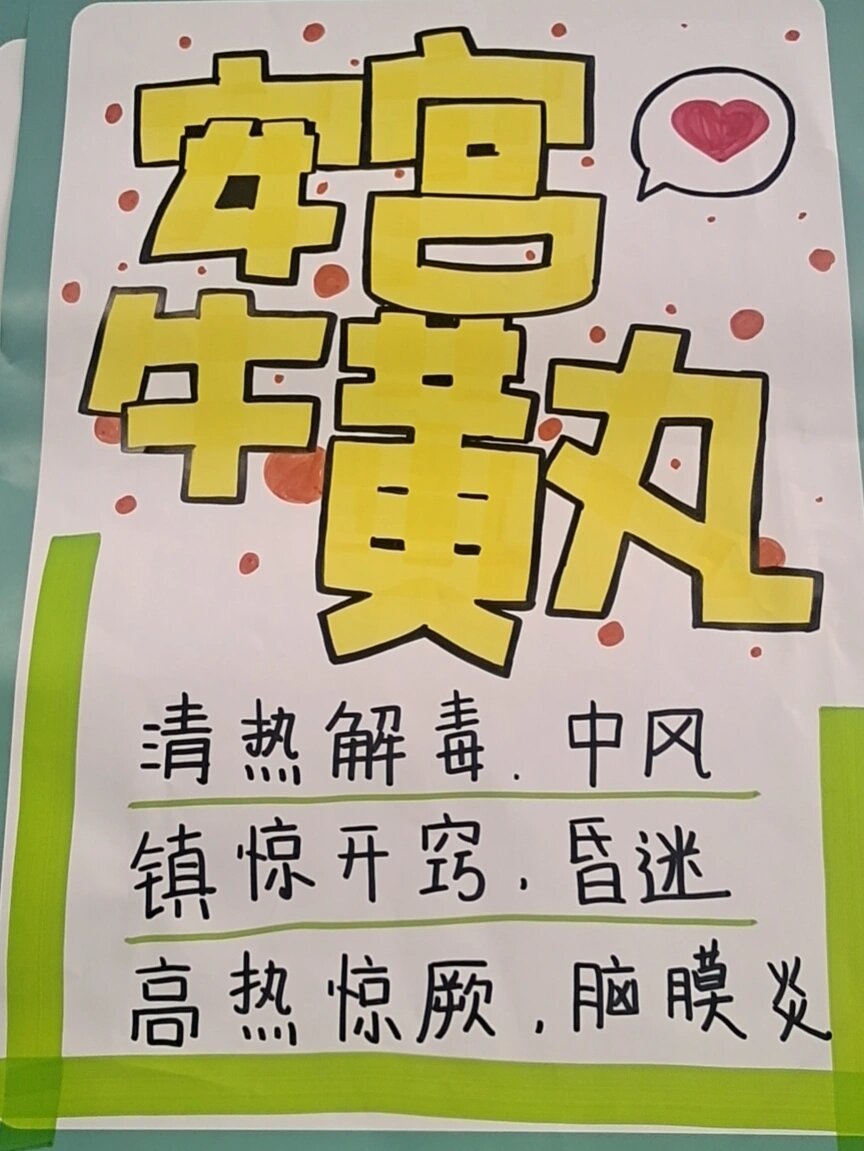 安宫
牛黄丸
清热解毒.中风
镇惊开窍,昏迷
高热惊厥,脑膜炎